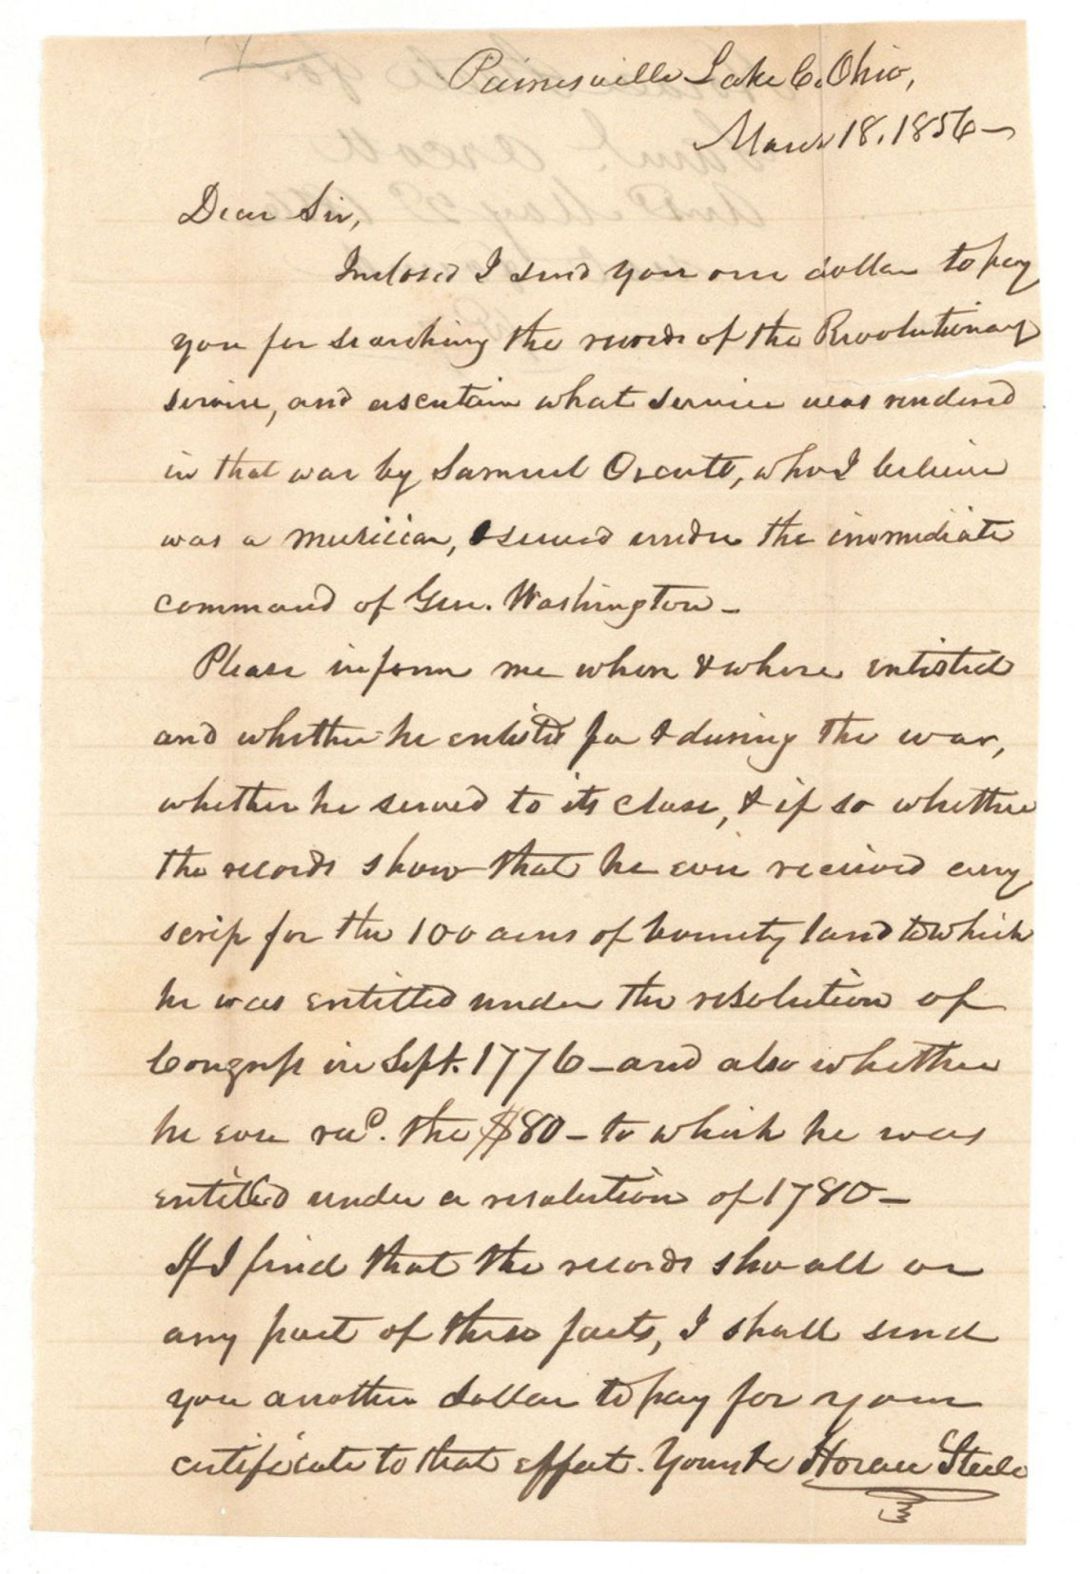 Painesville Lake Co. Ohio,
March 18. 1856
Dear Sir,
Inclosed I send you one dollar to pay
you for searching the records of the Revolutionary
service, and ascertain what service was rendered
in that war by Samuel Orcutt, who I believe
was a musician, & served under the immediate
command of Gen. Washington -
Please inform me when & where enlisted
and whether he enlisted for & during the war,
whether he served to its close, & if so whether
the records show that he ever received any
scrip for the 100 acres of bounty land to which
he was entitled under the resolution of
Congress in Sept. 1776 - and also whether
he ever recd. the $80 - to which he was
entitled under a resolution of 1780 -
If I find that the records show all or
any part of these facts, I shall send
you another dollar to pay for your
certificate to that effect. Yours &c Horace Steele